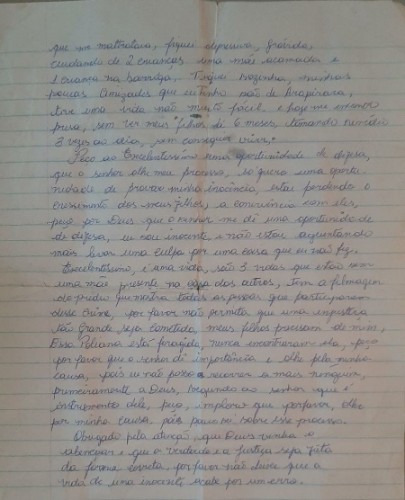 que me maltratava, fiquei depressiva, grávida,
cuidando de 2 crianças uma mãe acamada e
1 criança na barriga. Tinha
poucas amizades que eu tenho são de Arapiraca,
tive uma vida não muito fácil, e hoje me encontro
presa, sem ver meus filhos há 6 meses, tomando remédio
3 vezes ao dia, sem conseguir viver.
Peço ao Excelentíssimo uma oportunidade de defesa,
que o senhor olhe meu processo, só quero uma oportu
nidade de provar minha inocência, estou perdendo o
crescimento dos meus filhos, a convivência com eles,
peço por Deus que o senhor me dê uma oportunidade
de defesa, eu sou inocente e não estou aguentando
mais levar uma culpa por uma coisa que eu não fiz.
Excelentíssimo, é uma vida, são 3 vidas que estão sem
uma mãe presente na casa dos outros, tem a filmagem
do prédio que mostra todas as pessoas que participaram
desse crime, por favor não permita que uma injustiça
tão grande seja cometida, meus filhos precisam de mim,
Essa Poliana está foragida, nunca encontraram ela, peço
por favor que o senhor dê importância e olhe pela minha
causa, pois eu não posso recorrer a mais ninguém,
primeiramente a Deus, segundo ao senhor que é
instrumento dele, peço, imploro que por favor, olhe
por minha causa, sobre esse processo.
Obrigada pela atenção, que Deus venha o
abençoar e que a verdade e a justiça seja feita
da forma correta, por favor não deixe que a
vida de uma inocente acabe por um erro.